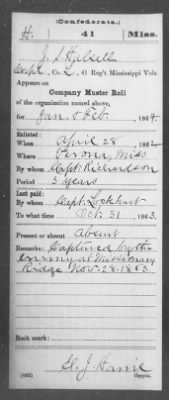 (Confederate.)
H. 41 Miss.
J. S. Hylsell
Corpl, Co. L, 41 Reg't Mississippi Vols.
Appears on
Company Muster Roll
of the organization named above,
for Jan. & Feb, 1864.
Enlisted:
When April 28, 1862.
Where Verona, Miss
By whom Capt. Richardson
Period 3 years
Last paid:
By whom Capt. Lockhart
To what time Oct. 31, 1863.
Present or absent Absent
Remarks: Captured by the
enemy at Missionary
Ridge Nov. 28. 1863.
Book mark:
(642)
Copyist.